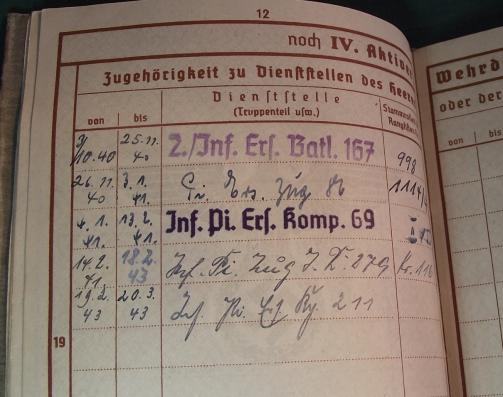 12
noch IV. Aktiver
Wehrd
Zugehörigkeit zu Dienststellen des Heeres
oder der
von bis Dienststelle
(Truppenteil usw.)
von bis
10.40 25.11. 40 2./Inf. Ers. Batl. 167 998
26.11. 40 3.1. 41. Ers. Zug 86
4.1. 41. 13.2. 41. Inf. Pi. Ers. Komp. 69
14.2. 41. 18.2. 43 Inf. Pi. Zug I.R. 279 Nr. 116
19.2. 43 20.3. 43 Inf. Pi. 211
19